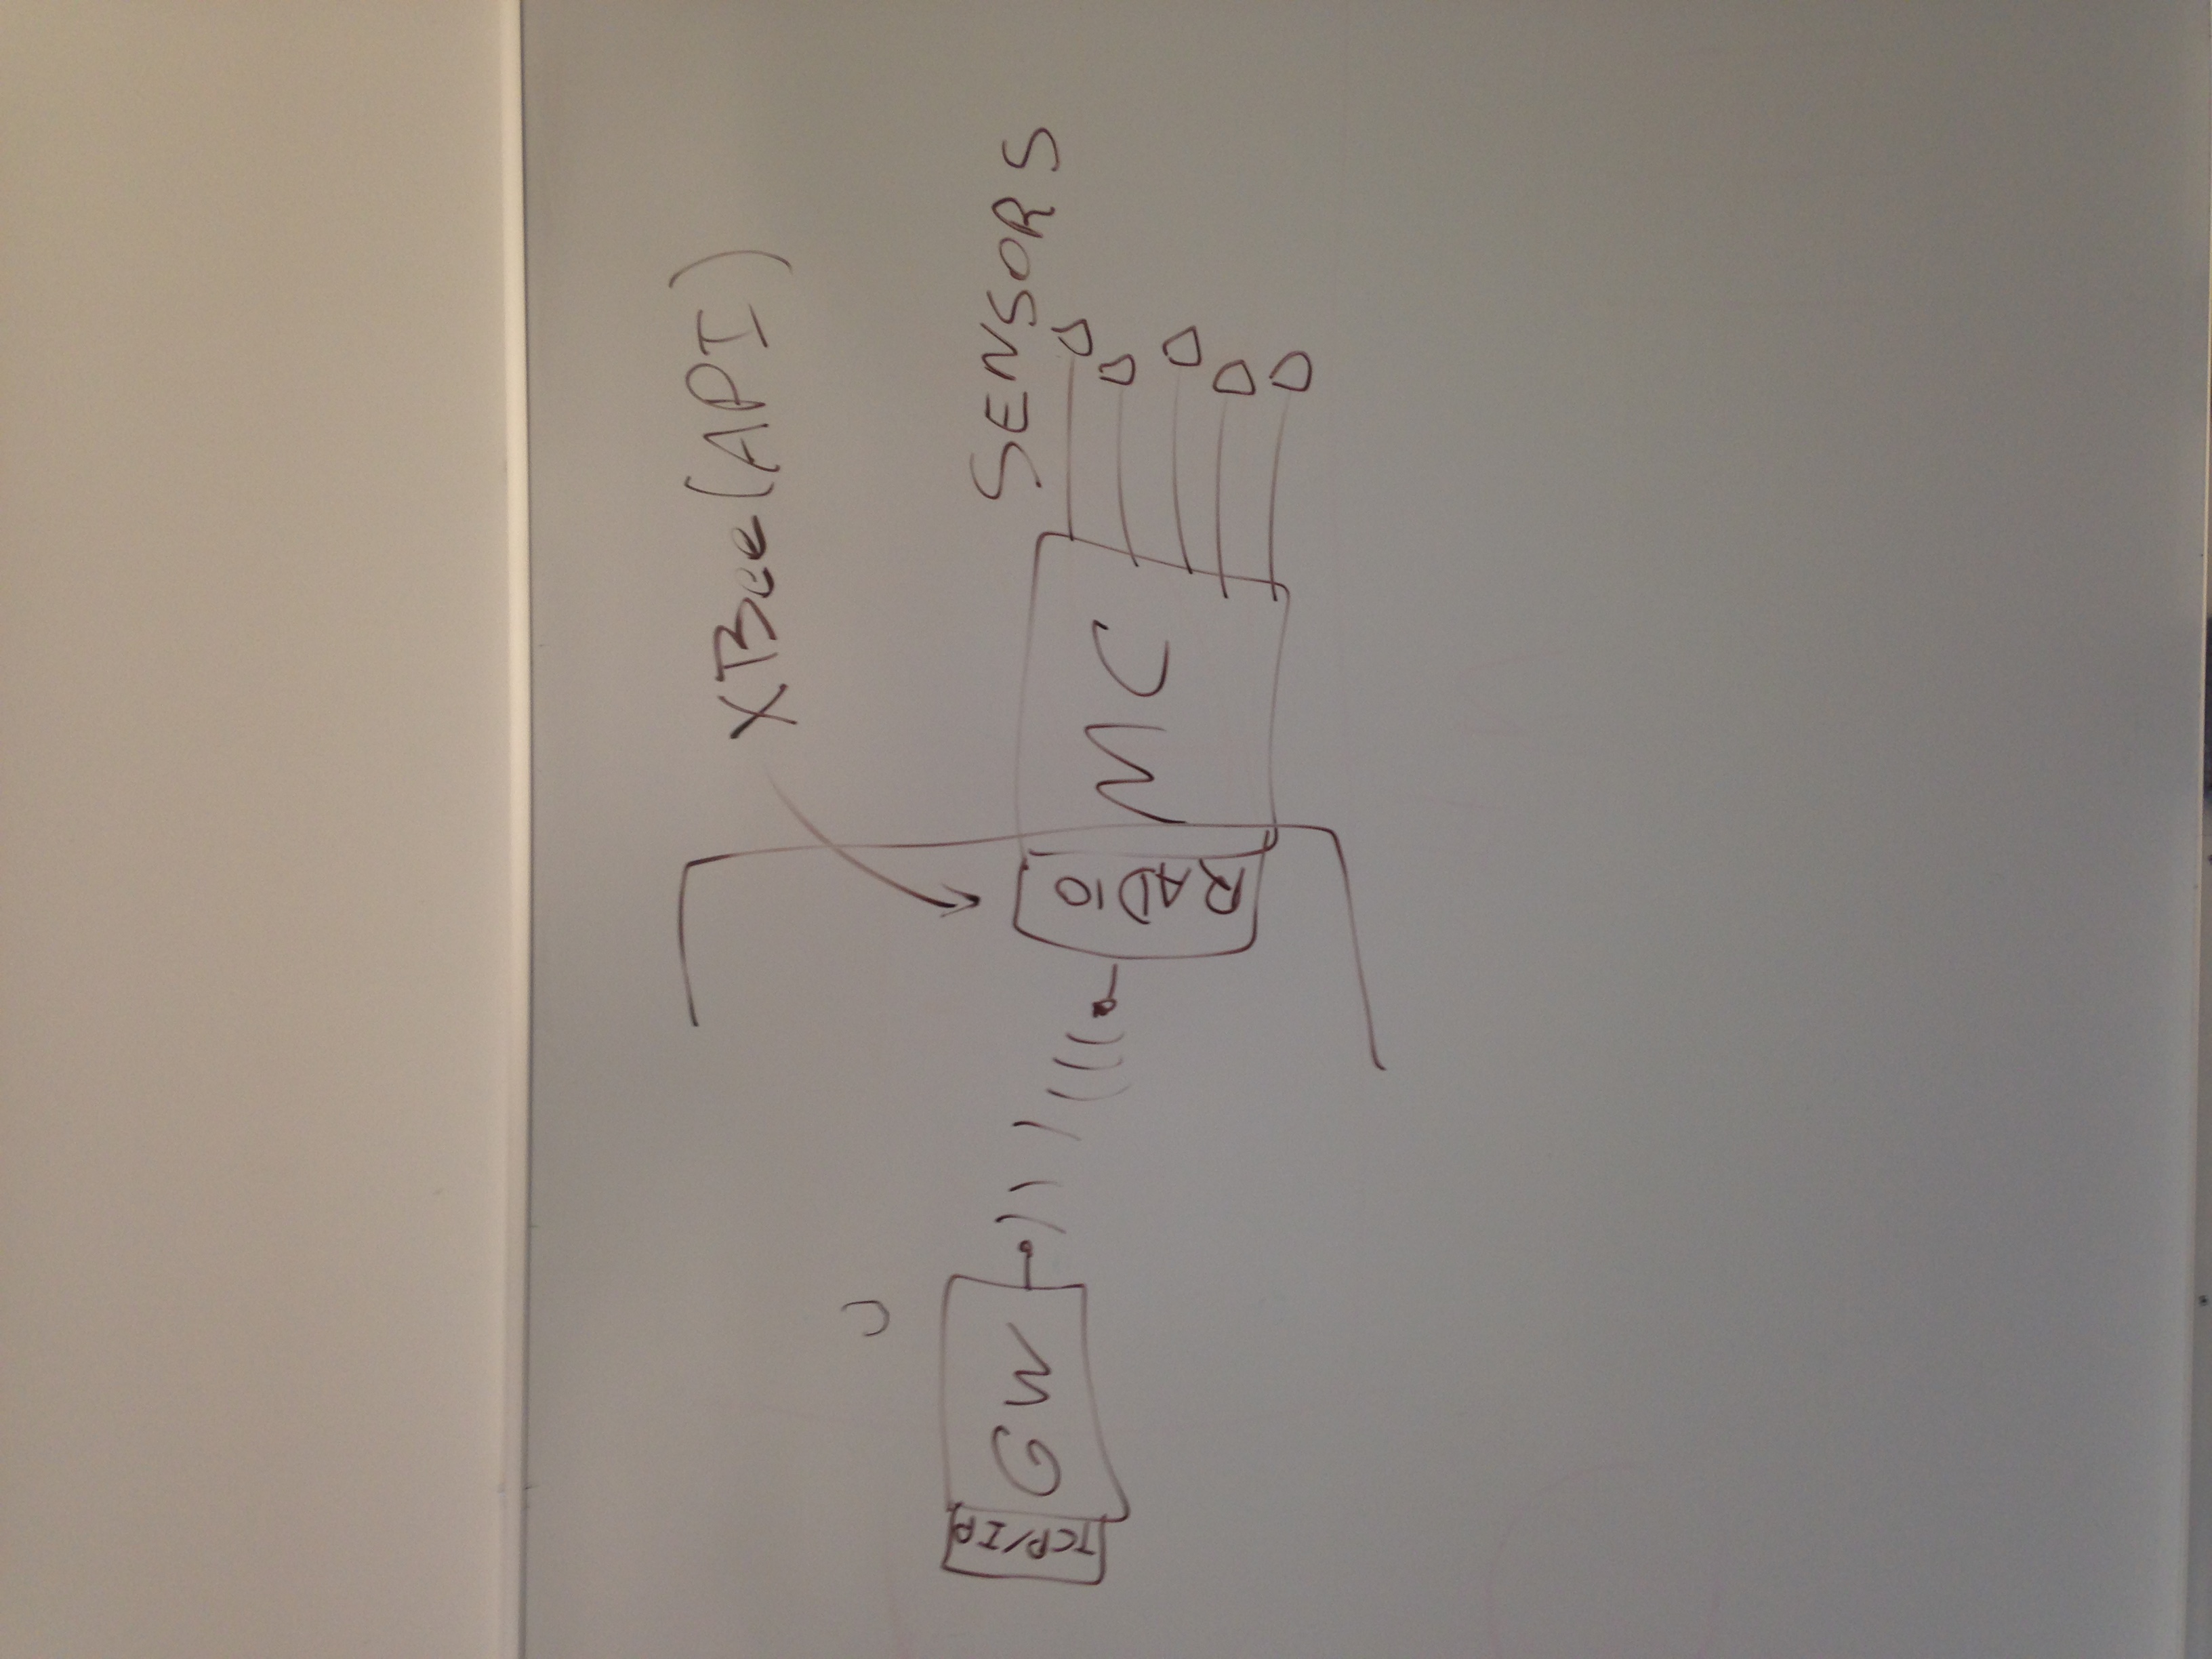 XBee(API)
TCP/IP
GW
RADIO
MC
SENSORS